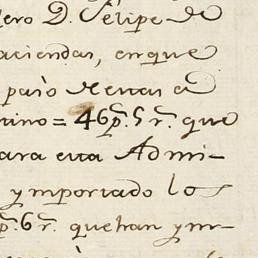 ero D. Felipe de
aciendas, en que
pasò Rentas a
tino = 46p.s 5 r.s que
ara esta Admi-
y ymportado los
p.s 6 r.s que han ym-